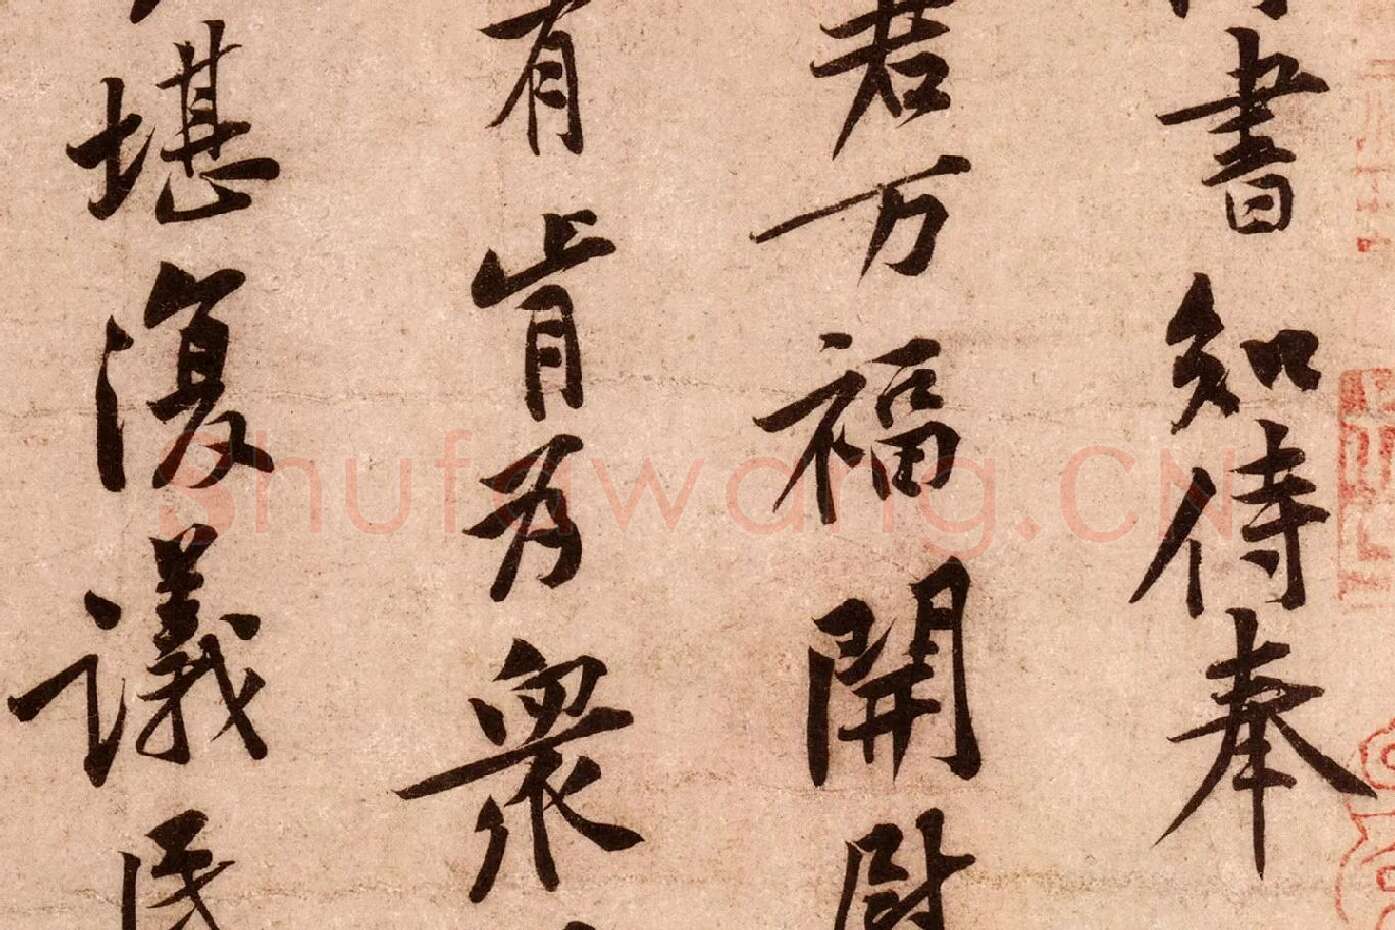 書知待奉
君万福開慰
有肯为衆
堪復議民
shufawang.CN